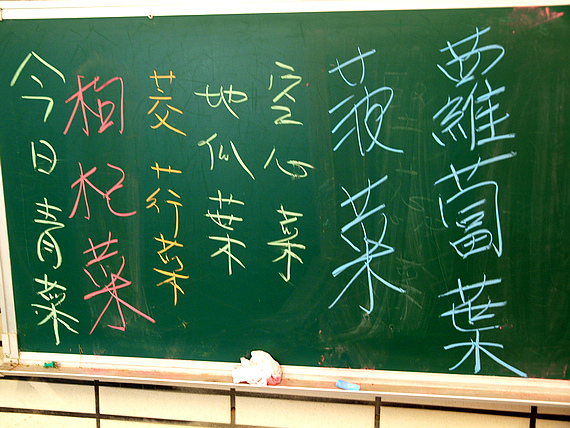 今日青菜
枸杞菜
茭荇菜
地似葉
空心菜
菠菜
蘿蔔葉